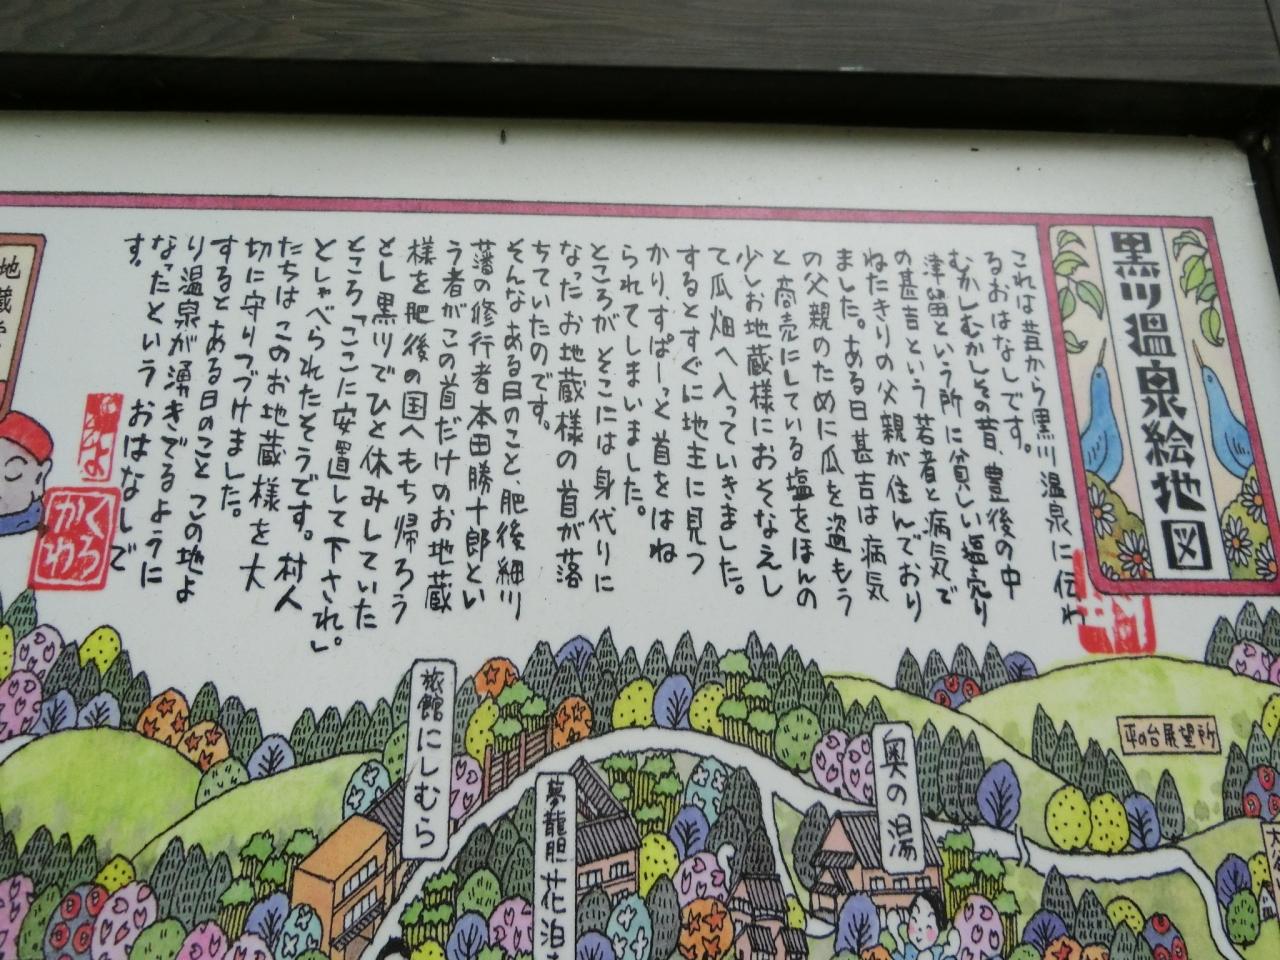 黒川温泉絵地図
これは昔から黒川温泉に伝わ
るおはなしです。
むかしむかしその昔、豊後の中
津留という所に貧しい塩売り
の甚吉という若者と病気で
ねたきりの父親が住んでおり
ました。ある日甚吉は病気
の父親のために瓜を盗もう
と商売にしている塩をほんの
少しお地蔵様におそなえし
て瓜畑へ入っていきました。
するとすぐに地主に見つ
かり、すぱーっと首をはね
られてしまいました。
ところがそこには身代りに
なったお地蔵様の首が落
ちていたのです。
そんなある日のこと、肥後細川
藩の修行者本田勝十郎とい
う者がこの首だけのお地蔵
様を肥後の国へもち帰ろう
とし黒川でひと休みしていた
ところ「ここに安置して下され。」
としゃべられたそうです。村人
たちはこのお地蔵様を大
切に守りつづけました。
するとある日のことこの地よ
り温泉が湧きでるように
なったというおはなしで
す。
くろ
かわ
地蔵
平の台展望所
旅館にしむら
奥の湯
夢龍胆
花泊